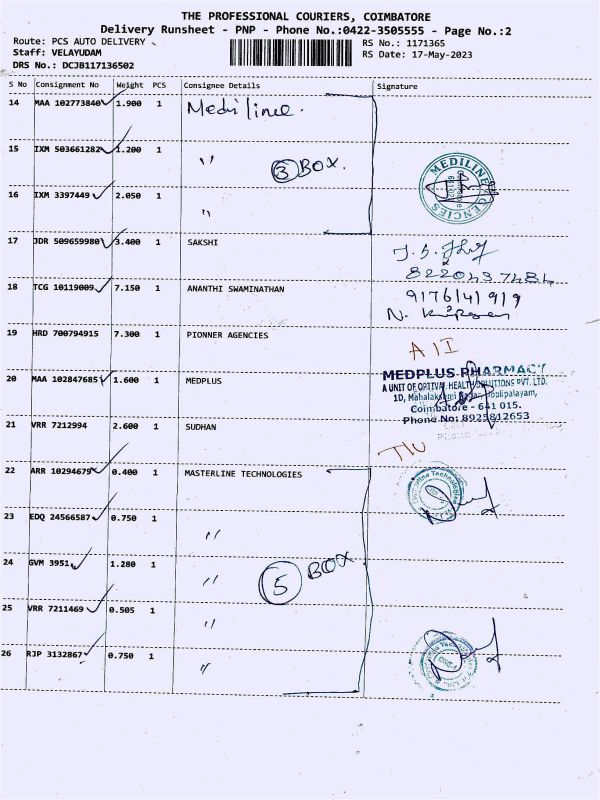 THE PROFESSIONAL COURIERS, COIMBATORE
Delivery Runsheet - PNP - Phone No.:0422-3505555 - Page No.:2
Route: PCS AUTO DELIVERY
RS No.: 1171365
Staff: VELAYUDAM
RS Date: 17-May-2023
DRS No.: DCJB117136502
S No Consignment No Weight PCS Consignee Details Signature
14 MAA 102773840 1.900 1 Mediline.
15 IXM 503661282 1.200 1 " 3 BOX.
16 IXM 3397449 2.050 1 "
MEDILINE AGENCIES
17 JDR 509659980 3.400 1 SAKSHI
18 TCG 10119009 7.150 1 ANANTHI SWAMINATHAN
9176141919
19 HRD 700794915 7.300 1 PIONNER AGENCIES
A/I
20 MAA 102847685 1.600 1 MEDPLUS
MEDPLUS PHARMACY
A UNIT OF OPTIVAL HEALTH SOLUTIONS PVT. LTD.
1D, Mahalakshmi Nagar,
Coimbatore - 641 015.
Phone No: 8925812653
21 VRR 7212994 2.600 1 SUDHAN
22 ARR 10294679 0.400 1 MASTERLINE TECHNOLOGIES
23 EDQ 24566587 0.750 1 "
24 GVM 3951 1.280 1 " 5 BOX
25 VRR 7211469 0.505 1 "
26 RJP 3132867 0.750 1 "